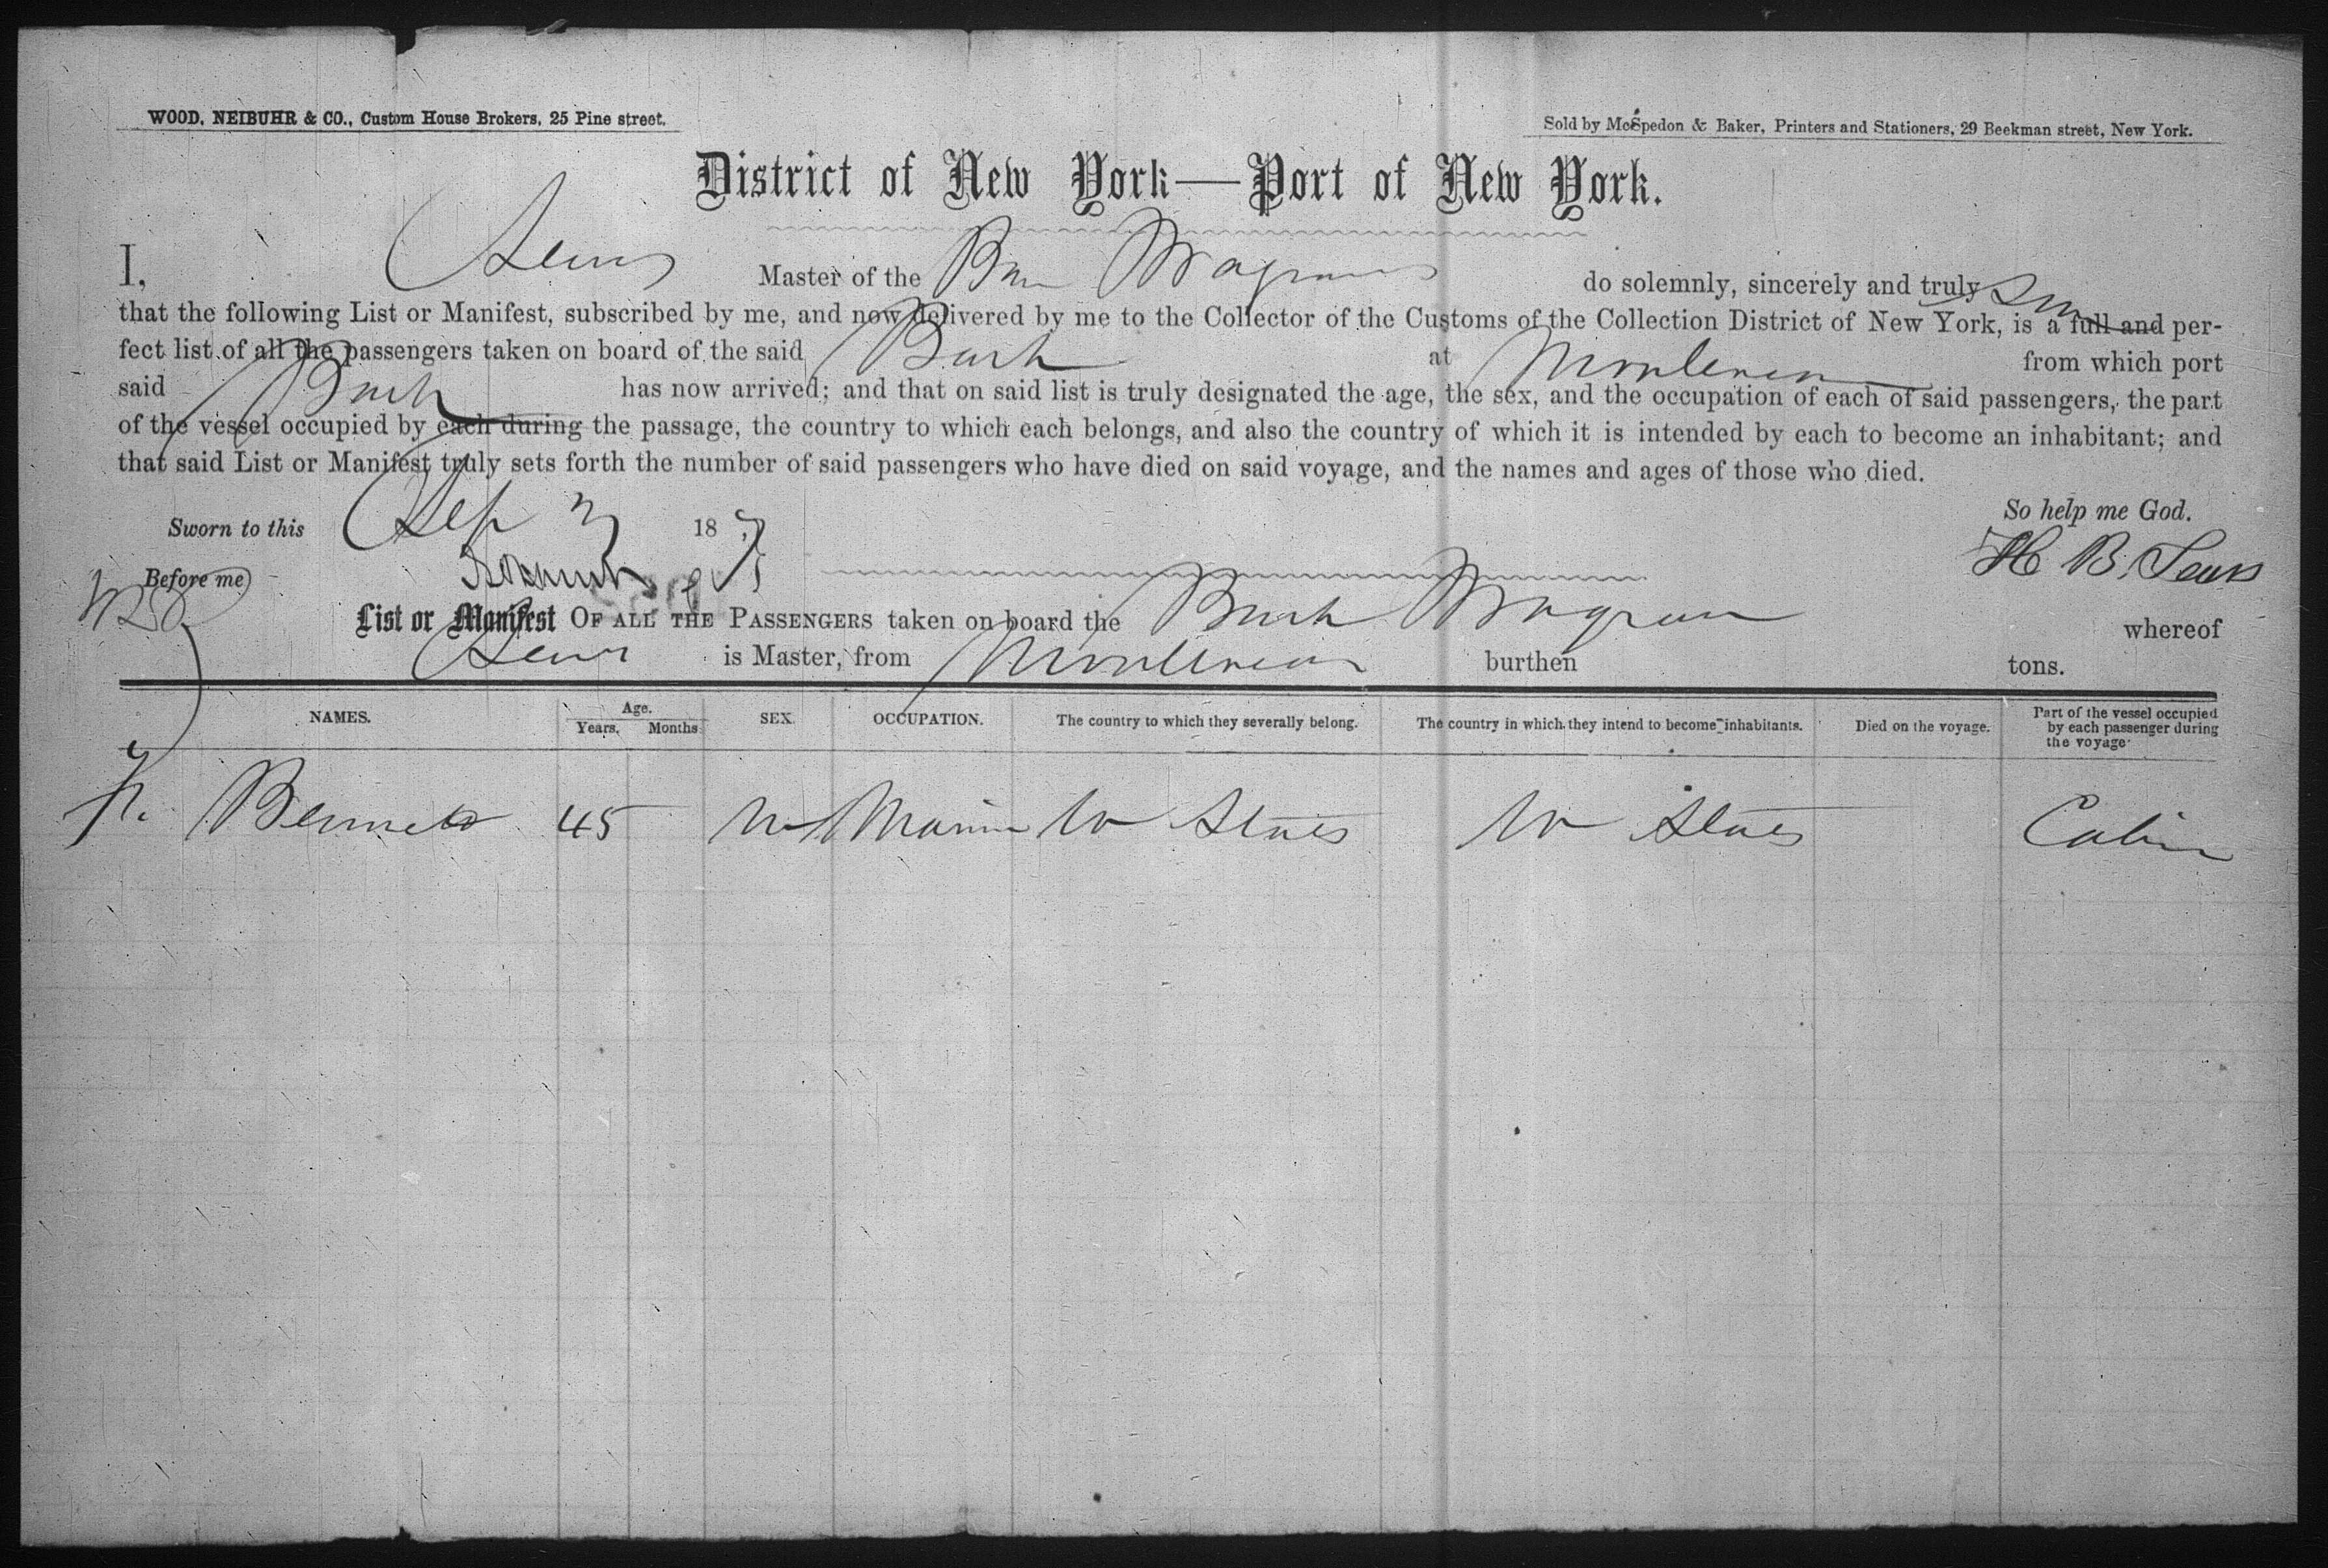 WOOD, NEIBUHR & CO., Custom House Brokers, 25 Pine street.
Sold by McSpedon & Baker, Printers and Stationers, 29 Beekman street, New York.
District of New York—Port of New York.
I, Sears Master of the do solemnly, sincerely and truly
that the following List or Manifest, subscribed by me, and now delivered by me to the Collector of the Customs of the Collection District of New York, is a full and per-
fect list of all the passengers taken on board of the said Bark at from which port
said Bark has now arrived; and that on said list is truly designated the age, the sex, and the occupation of each of said passengers, the part
of the vessel occupied by each during the passage, the country to which each belongs, and also the country of which it is intended by each to become an inhabitant; and
that said List or Manifest truly sets forth the number of said passengers who have died on said voyage, and the names and ages of those who died.
So help me God.
Sworn to this Sep 3 18
H B. Sears
Before me
List or Manifest OF ALL THE PASSENGERS taken on board the Bark whereof
Sears is Master, from burthen tons.
NAMES. Age. Years. Months. SEX. OCCUPATION. The country to which they severally belong. The country in which they intend to become inhabitants. Died on the voyage. Part of the vessel occupied by each passenger during the voyage
Bennett 45 M U States U States Cabin